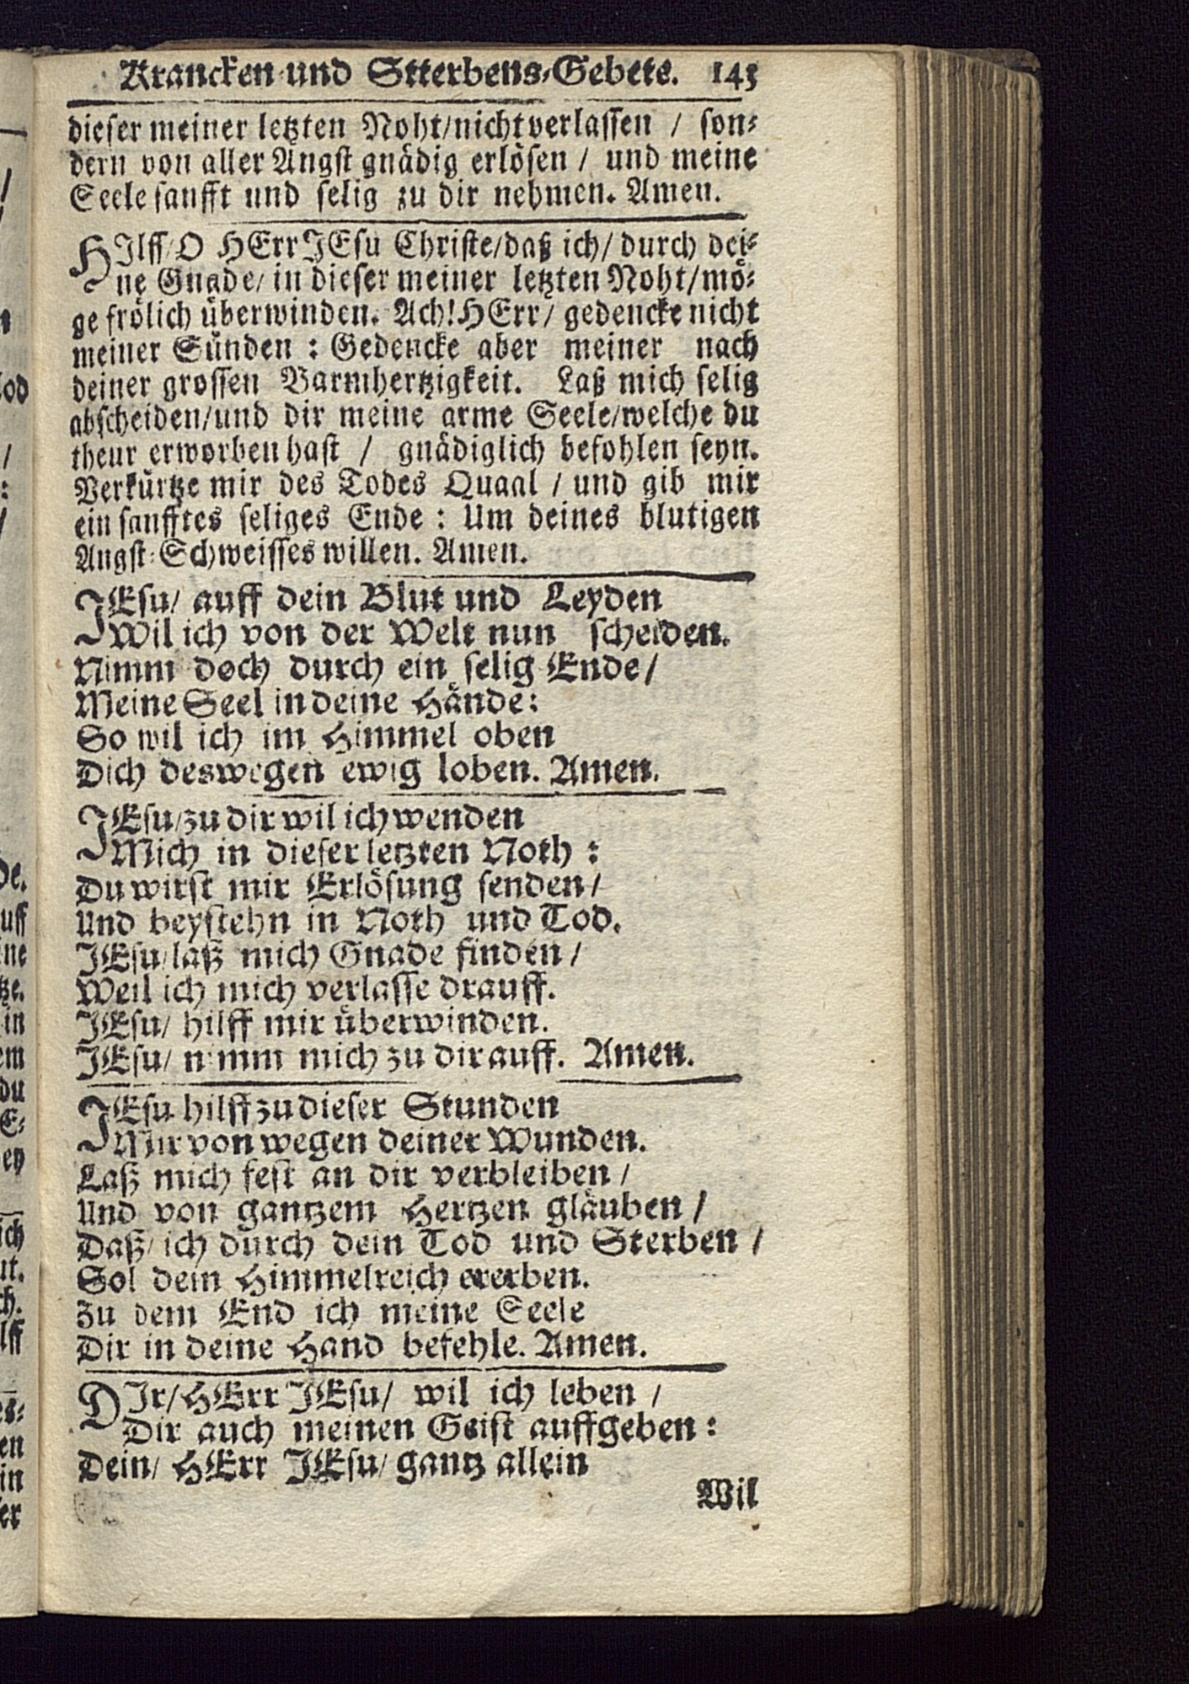 Krancken und Stterbens-Gebete. 145
dieser meiner letzten Noht/nicht verlassen / son-
dern von aller Angst gnädig erlösen / und meine
Seele saufft und selig zu dir nehmen. Amen.
HIlff/O HErr JEsu Christe/daß ich/ durch dei-
ne Gnade/ in dieser meiner letzten Noht/mö-
ge frölich überwinden. Ach! HErr/ gedencke nicht
meiner Sünden : Gedencke aber meiner nach
deiner grossen Barmhertzigkeit. Laß mich selig
abscheiden/und dir meine arme Seele/welche du
theur erworben hast / gnädiglich befohlen seyn.
Verkürtze mir des Todes Quaal / und gib mir
ein sanfftes seliges Ende : Um deines blutigen
Angst-Schweisses willen. Amen.
JEsu/ auff dein Blut und Leyden
Wil ich von der Welt nun scheiden.
Nimm doch durch ein selig Ende/
Meine Seel in deine Hände:
So wil ich im Himmel oben
Dich deswegen ewig loben. Amen.
JEsu/zu dir wil ich wenden
Mich in dieser letzten Noth :
Du wirst mir Erlösung senden/
Und beystehn in Noth und Tod.
JEsu/laß mich Gnade finden/
Weil ich mich verlasse drauff.
JEsu/ hilff mir überwinden.
JEsu/ nimm mich zu dir auff. Amen.
JEsu hilff zu dieser Stunden
Mir von wegen deiner Wunden.
Laß mich fest an dir verbleiben/
Und von gantzem Hertzen gläuben/
Daß/ ich durch dein Tod und Sterben /
Sol dein Himmelreich ererben.
Zu dem End ich meine Seele
Dir in deine Hand befehle. Amen.
DIr/HErr JEsu/ wil ich leben /
Dir auch meinen Geist auffgeben:
Dein/ HErr JEsu/ gantz allein
Wil